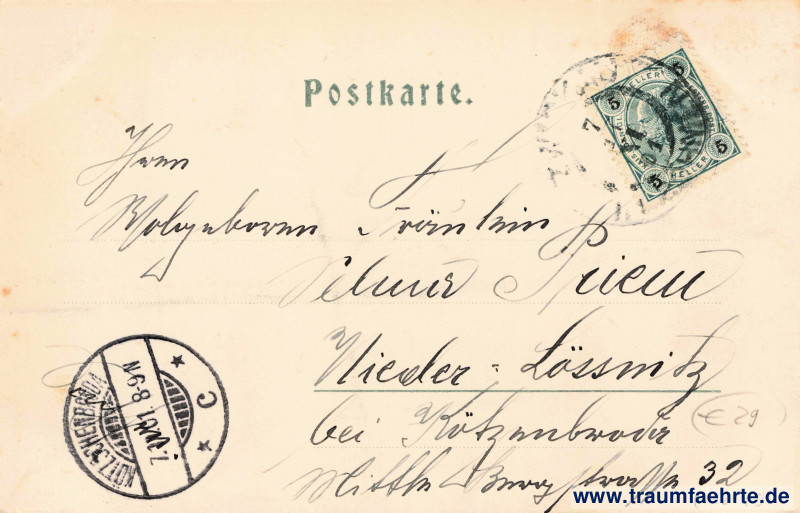 Postkarte.
5
HELLER
5
5
HELLER
5
Ihrer
Wolgeboren Fräulein
Selma Priem
Nieder-Lössnitz
bei Kötzenbroda
Mittle Bergstraße 32
€ 29
KÖTZSCHENBRODA
8-9N
C
www.traumfaehrte.de